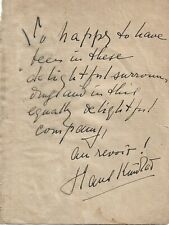 So happy to have
been in these
delightful surroun-
dings and in this
equally delightful
company,
au revoir!
Hans